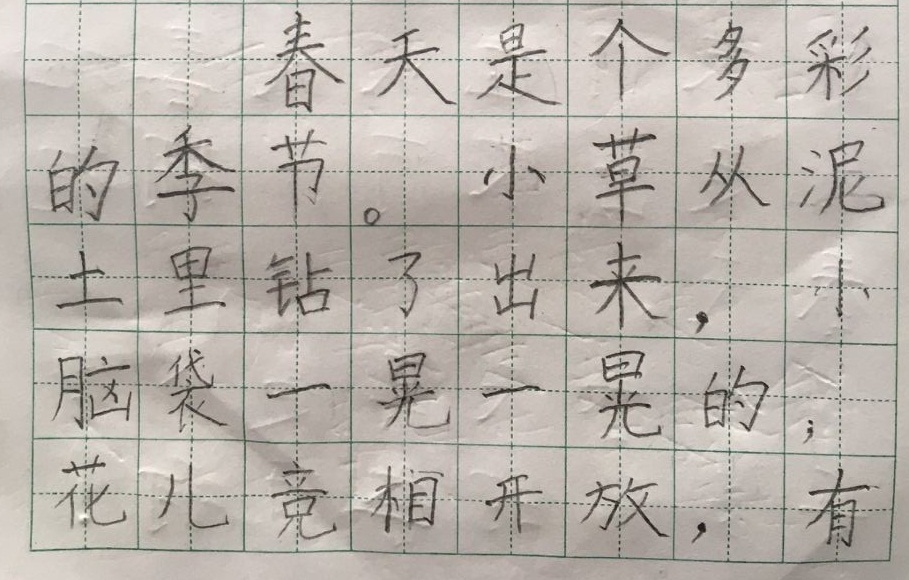 春天是个多彩
的季节。小草从泥
土里钻了出来，小
脑袋一晃一晃的；
花儿竞相开放，有